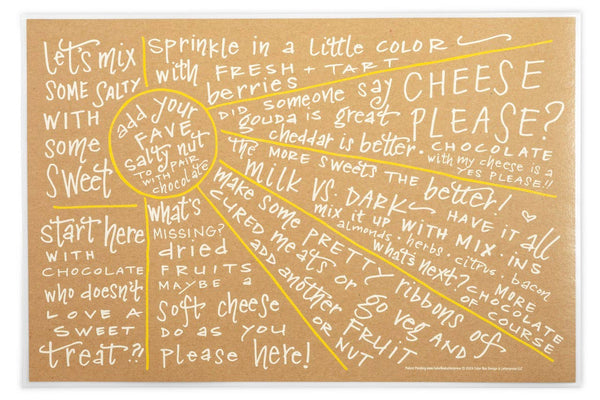 let's mix
SOME SALTY
WITH
some
sweet
sprinkle in a little COLOR
with FRESH + TART
berries
add your
FAVE
salty nut
TO PAIR
WITH
chocolate
DID someone say
gouda is great
cheddar is better.
CHEESE
PLEASE?
CHOCOLATE
with my cheese is a
YES PLEASE!!
the MORE sweets THE better!
milk VS. DARK
HAVE IT all
mix it up WITH MIX-INS
almonds, herbs, citrus, bacon
what's next? MORE
CHOCOLATE
OF COURSE
make some PRETTY ribbons of
CURED meats or go veg AND
ADD another FRUIT
OR NUT
start here
WITH
CHOCOLATE
who doesn't
LOVE A
SWEET
treat?!
what's
MISSING?
dried
FRUITS
MAYBE a
soft cheese
DO AS YOU
please here!